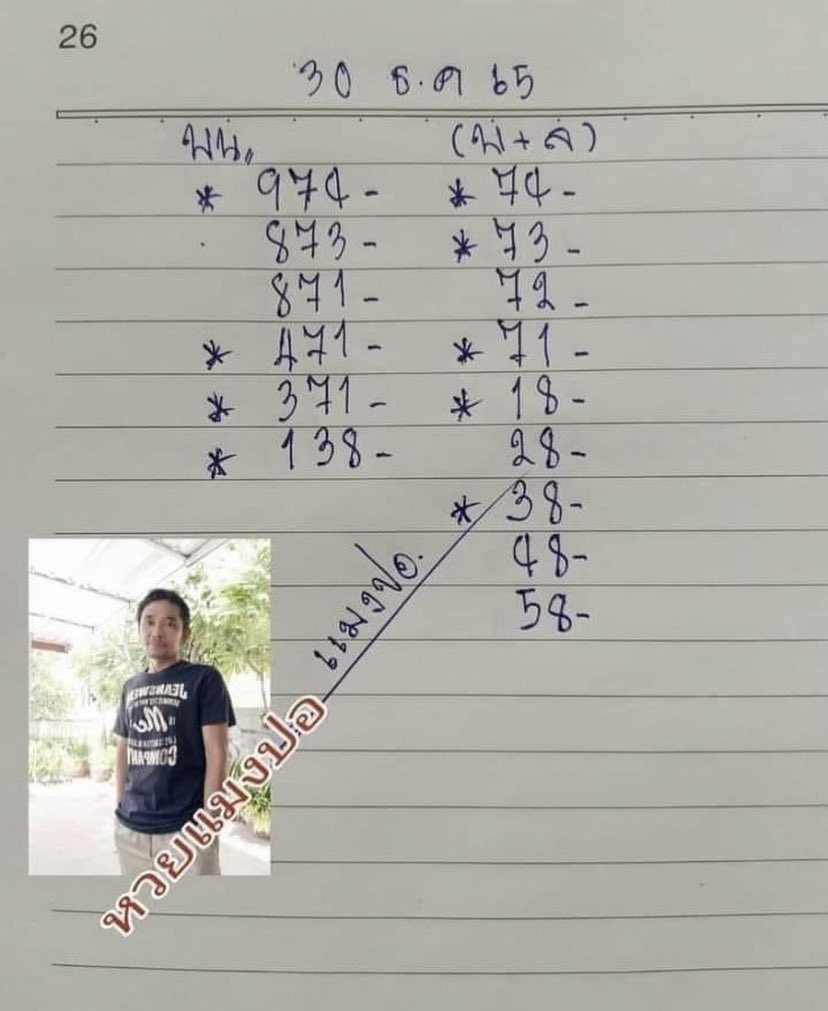 26
30 ธ.ค 65
บน. (บ+ล)
* 974- * 74-
873- * 73-
871- 72-
* 471- * 71-
* 371- * 18-
* 138- 28-
* 38-
48-
58-
แมงปอ.
JEANSWEST
COMPANY
หวยแมงปอ